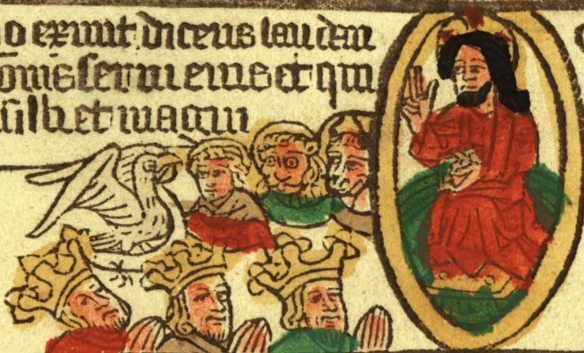 o exiuit dicens laudem
omnes serui eius et qui
usilli et magni